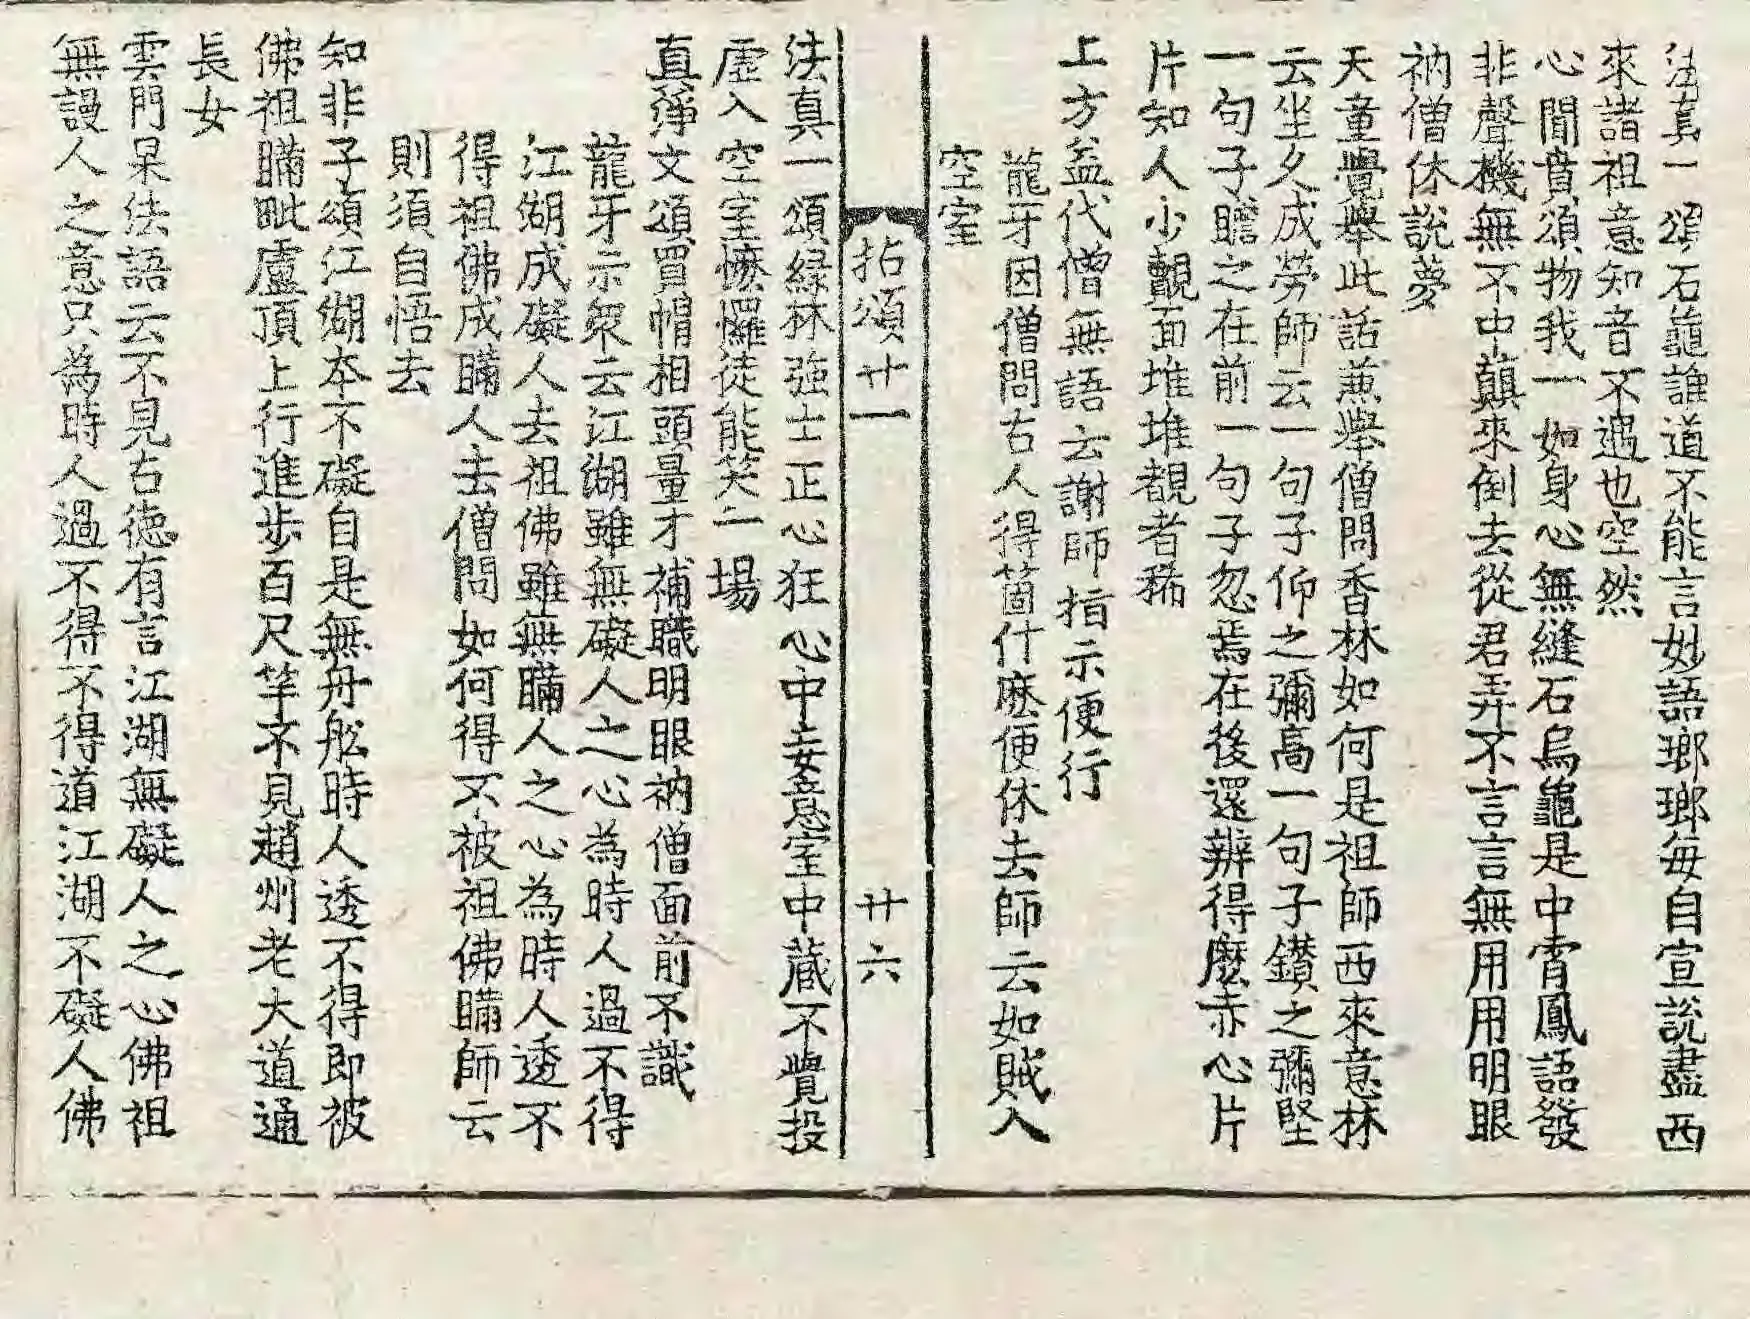 法真一頌石龜誰道不能言妙語瑯瑯每自宣說盡西
來諸祖意知音不遇也空然
心聞賁頌物我一如身心無縫石烏龜是中宵鳳語發
非聲機無不中顛來倒去從君弄不言言無用用明眼
衲僧休說夢
天童覺舉此話兼舉僧問香林如何是祖師西來意林
云坐久成勞師云一句子仰之彌高一句子鑚之彌堅
一句子瞻之在前一句子忽焉在後還辨得麽赤心片
片知人少覿面堆堆覩者稀
上方益代僧無語云謝師指示便行
龍牙因僧問古人得箇什麽便休去師云如賊入
空室
拈頌廿一
廿六
法真一頌緑林強士正心狂心中妄意室中蔵不覺投
虛入空室懡㦬徒能笑一場
真淨文頌買帽相頭量才補職明眼衲僧面前不識
龍牙示衆云江湖雖無礙人之心為時人過不得
江湖成礙人去祖佛雖無瞞人之心為時人透不
得祖佛成瞞人去僧問如何得不被祖佛瞞師云
則須自悟去
知非子頌江湖本不礙自是無舟舩時人透不得即被
佛祖瞞毗盧頂上行進步百尺竿不見趙州老大道通
長女
雲門杲法語云不見古徳有言江湖無礙人之心佛祖
無謾人之意只為時人過不得不得道江湖不礙人佛